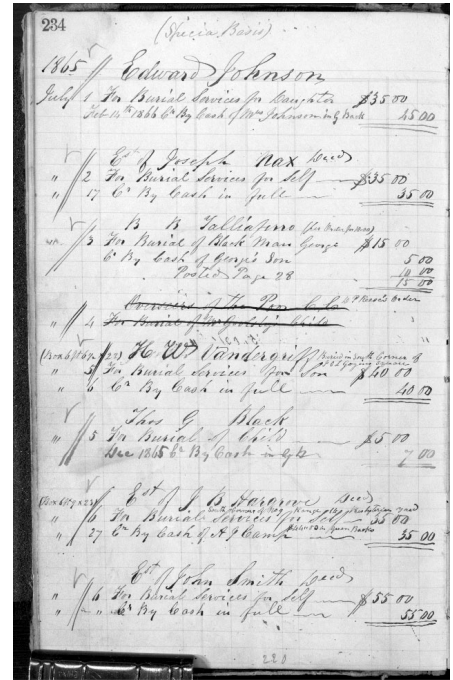 234
(Specia Basis)
1865 Edward Johnson
July 1 For Burial Services for Daughter $35 00
Feb 14th 1866 Cr By Cash of Mrs Johnson in G Back 45 00
Est of Joseph Nax Decd
" 2 For Burial Services for Self $35 00
" 17 Cr By Cash in full 35 00
B R Talliaferro
" 3 For Burial of Black Man George $15 00
Cr By Cash of George's Son 5 00
Posted Page 28 10 00
15 00
Overseers of the Poor C. C. Order
" 4 For Burial of Child
H. W. Vandergrift Buried in South Corner of
" 5 For Burial Services for Son $40 00
" 6 Cr By Cash in full 40 00
Thos G Black
" 5 For Burial of Child $5 00
Dec 1865 Cr By Cash in G B 7 00
Est of J B Hargrove Decd
" 6 For Burial Services for Self 35 00
" 27 Cr By Cash of A J Camp 35 00
Est of John Smith Decd
" 6 For Burial Services for Self $55 00
" " Cr By Cash in full 55 00
220